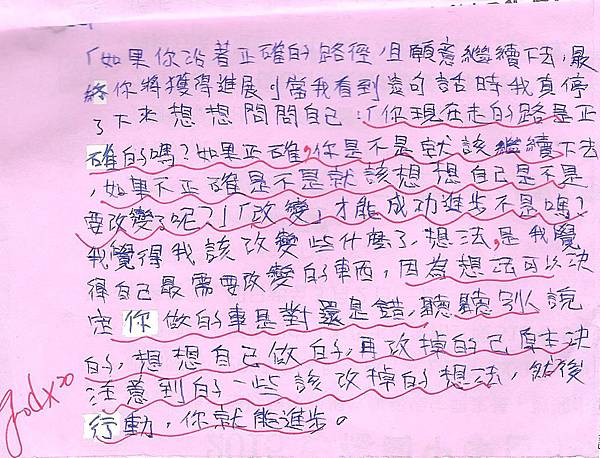 「如果你沿著正確的路徑,且願意繼續下去,最
終你將獲得進展」當我看到這句話時我真停
了下來想想問問自己:「你現在走的路是正
確的嗎?如果正確,你是不是就該繼續下去
,如果不正確是不是就該想想自己是不是
要改變了呢?」「改變」才能成功進步不是嗎?
我覺得我該改變些什麼了,想法,是我覺
得自己最需要改變的東西,因為想法可以決
定你做的事是對還是錯,聽聽別人說
的,想想自己做的,再改掉的己原本決
注意到的一些該改掉的想法,然後
行動,你就能進步。
Good x20